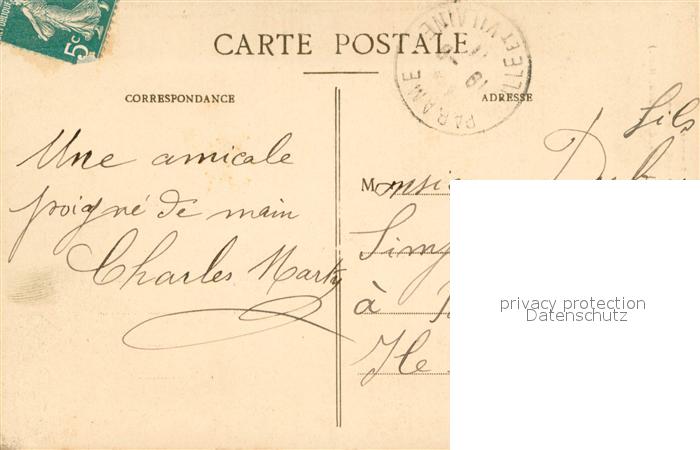 5c
CARTE POSTALE
PARAMÉ
ILLE ET VILAINE
CORRESPONDANCE
ADRESSE
Une amicale
poigné de main
Charles Marty
fils
Monsie
à
privacy protection
Datenschutz